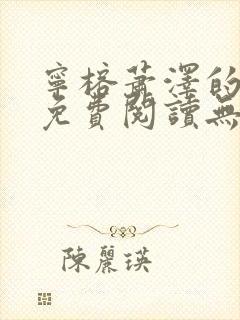 寧榕蕭澤的
免費閱讀無
陳麗瑛